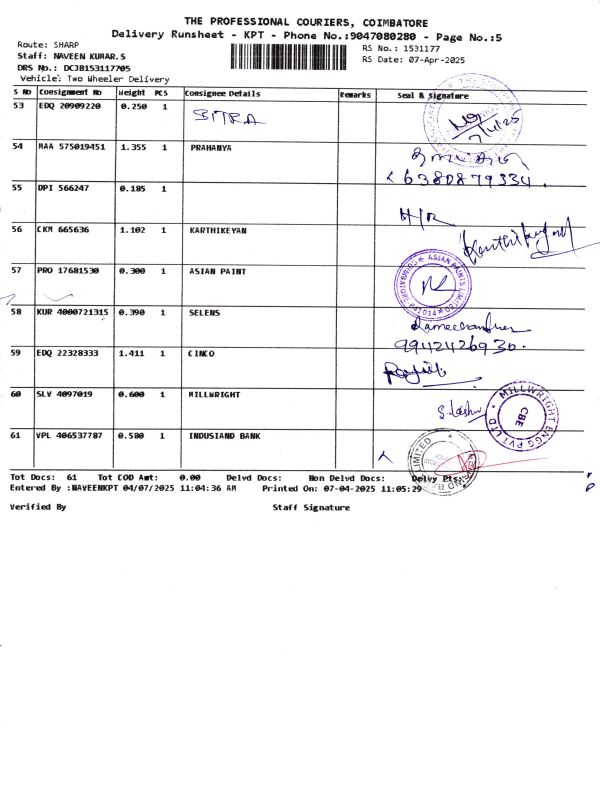 THE PROFESSIONAL COURIERS, COIMBATORE
Delivery Runsheet - KPT - Phone No.:9047080280 - Page No.:5
Route: SHARP
RS No.: 1531177
Staff: NAVEEN KUMAR.S
RS Date: 07-Apr-2025
DRS No.: DCJB153117705
Vehicle: Two Wheeler Delivery
S No Consignment No Weight PCS Consignee Details Remarks Seal & Signature
53 EDQ 20909220 0.250 1 SITRA
7/4/25
54 MAA 575019451 1.355 1 PRAHANYA
6380879334.
55 DPI 566247 0.185 1
H/R
56 CKM 665636 1.102 1 KARTHIKEYAN
57 PRO 17681530 0.300 1 ASIAN PAINT
ASIAN PAINTS LIMITED COIMBATORE 641014
58 KUR 4000721315 0.390 1 SELENS
Rameechandran
9942426930.
59 EDQ 22328333 1.411 1 CINCO
60 SLV 4097019 0.600 1 MILLWRIGHT
MILLWRIGHT ENGG PVT LTD
CBE
61 VPL 406537787 0.580 1 INDUSIAND BANK
LIMITED
Tot Docs: 61 Tot COD Amt: 0.00 Delvd Docs: Non Delvd Docs: Delvy Pts:
Entered By :NAVEENKPT 04/07/2025 11:04:36 AM Printed On: 07-04-2025 11:05:29
Verified By Staff Signature